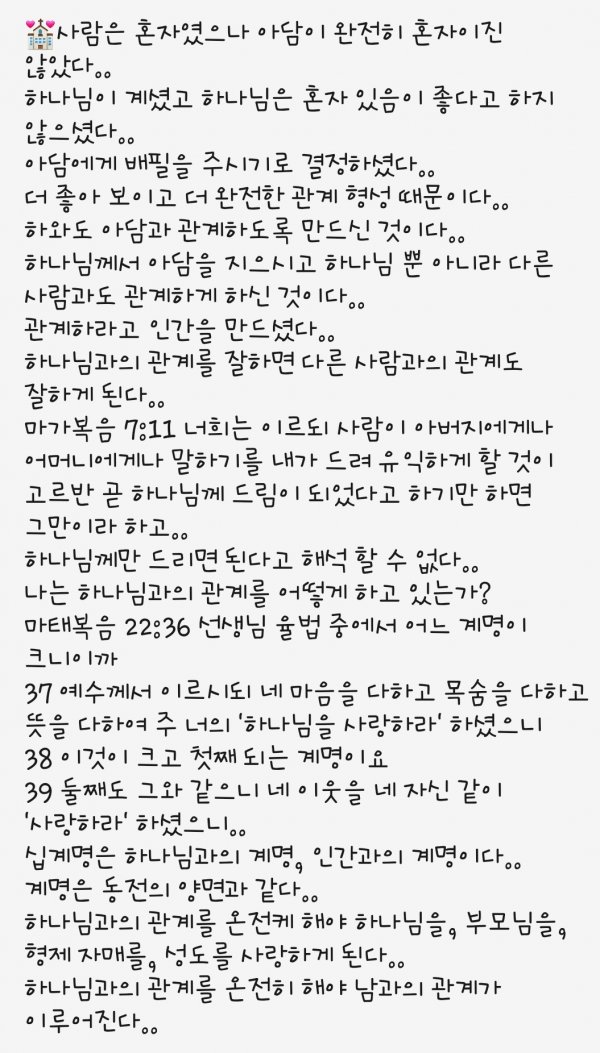 💒사람은 혼자였으나 아담이 완전히 혼자이진
않았다..
하나님이 계셨고 하나님은 혼자 있음이 좋다고 하지
않으셨다..
아담에게 배필을 주시기로 결정하셨다..
더 좋아 보이고 더 완전한 관계 형성 때문이다..
하와도 아담과 관계하도록 만드신 것이다..
하나님께서 아담을 지으시고 하나님 뿐 아니라 다른
사람과도 관계하게 하신 것이다..
관계하라고 인간을 만드셨다..
하나님과의 관계를 잘하면 다른 사람과의 관계도
잘하게 된다..
마가복음 7:11 너희는 이르되 사람이 아버지에게나
어머니에게나 말하기를 내가 드려 유익하게 할 것이
고르반 곧 하나님께 드림이 되었다고 하기만 하면
그만이라 하고..
하나님께만 드리면 된다고 해석 할 수 없다..
나는 하나님과의 관계를 어떻게 하고 있는가?
마태복음 22:36 선생님 율법 중에서 어느 계명이
크니이까
37 예수께서 이르시되 네 마음을 다하고 목숨을 다하고
뜻을 다하여 주 너의 '하나님을 사랑하라' 하셨으니
38 이것이 크고 첫째 되는 계명이요
39 둘째도 그와 같으니 네 이웃을 네 자신 같이
'사랑하라' 하셨으니..
십계명은 하나님과의 계명, 인간과의 계명이다..
계명은 동전의 양면과 같다..
하나님과의 관계를 온전케 해야 하나님을, 부모님을,
형제 자매를, 성도를 사랑하게 된다..
하나님과의 관계를 온전히 해야 남과의 관계가
이루어진다..